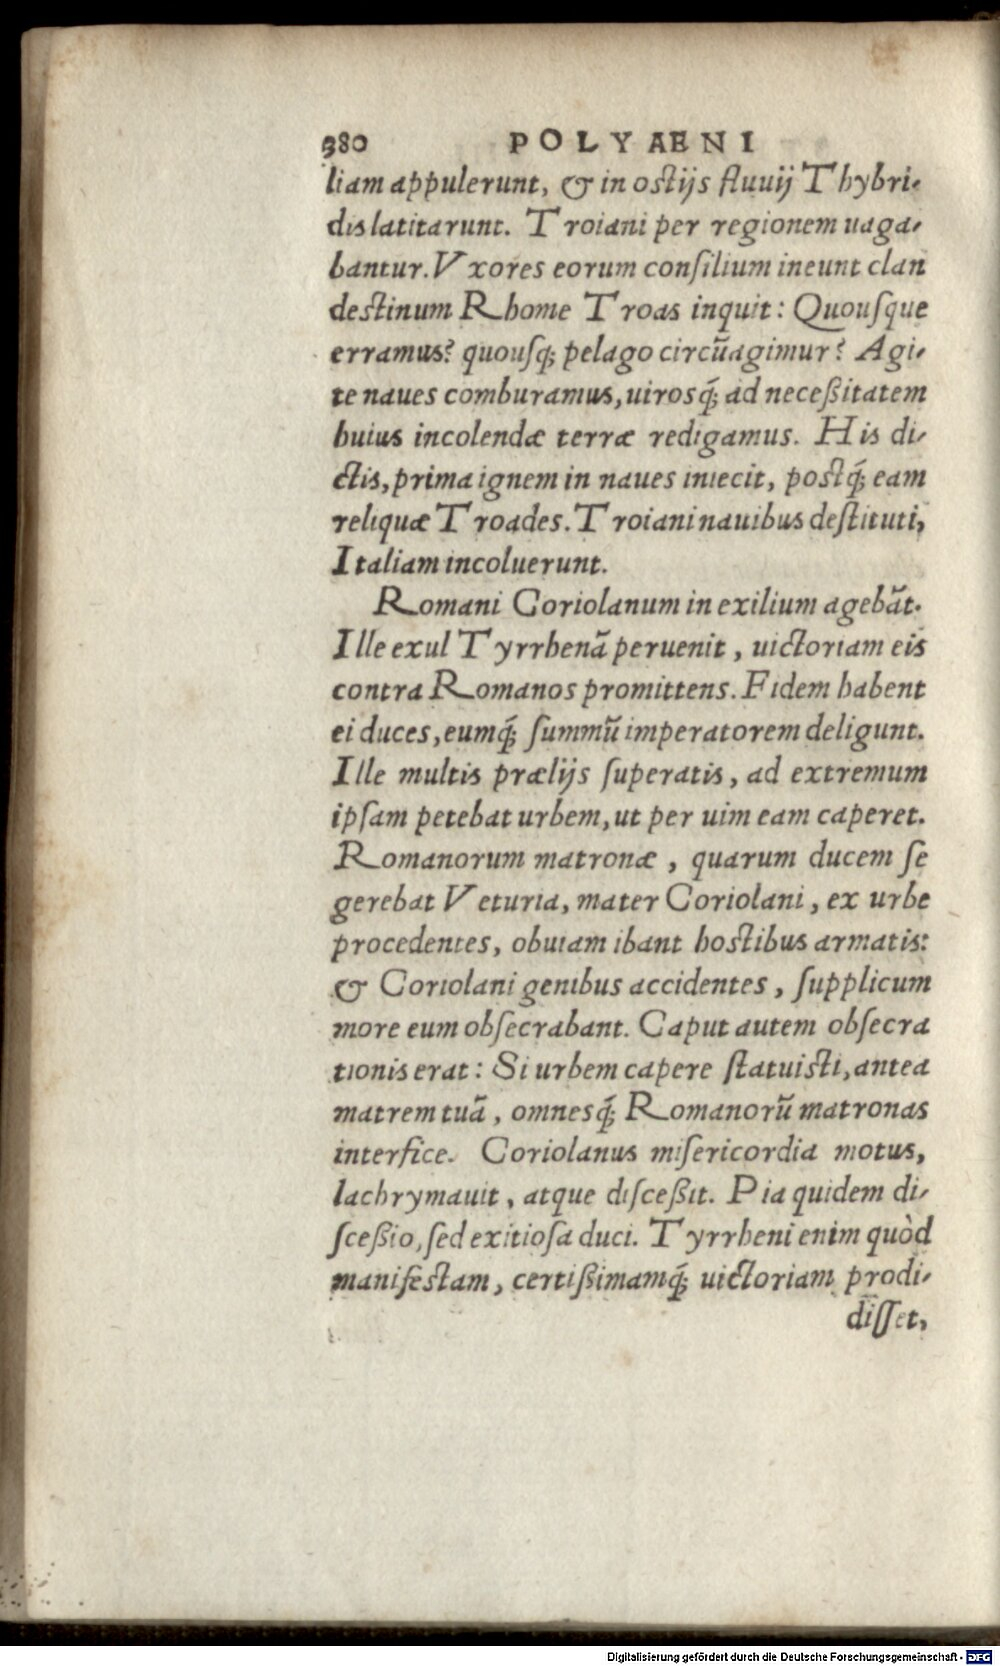 380 POLYAENI
liam appulerunt, & in ostijs fluuij Thybri-
dis latitarunt. Troiani per regionem uaga-
bantur. Vxores eorum consilium ineunt clan
destinum Rhome Troas inquit: Quousque
erramus? quousq; pelago circũagimur? Agi-
te naues comburamus, uirosq́; ad neceßitatem
huius incolendæ terræ redigamus. His di-
ctis, prima ignem in naues iniecit, postq́; eam
reliquæ Troades. Troiani nauibus destituti,
Italiam incoluerunt.
Romani Coriolanum in exilium agebãt.
Ille exul Tyrrhenã peruenit, uictoriam eis
contra Romanos promittens. Fidem habent
ei duces, eumq́; summũ imperatorem deligunt.
Ille multis prælijs superatis, ad extremum
ipsam petebat urbem, ut per uim eam caperet.
Romanorum matronæ, quarum ducem se
gerebat Veturia, mater Coriolani, ex urbe
procedentes, obuiam ibant hostibus armatis:
& Coriolani genibus accidentes, supplicum
more eum obsecrabant. Caput autem obsecra
tionis erat: Si urbem capere statuisti, antea
matrem tuã, omnesq́; Romanorũ matronas
interfice. Coriolanus misericordia motus,
lachrymauit, atque disceßit. Pia quidem di-
sceßio, sed exitiosa duci. Tyrrheni enim quòd
manifestam, certißimamq́; uictoriam prodi-
disset,
Digitalisierung gefördert durch die Deutsche Forschungsgemeinschaft - DFG